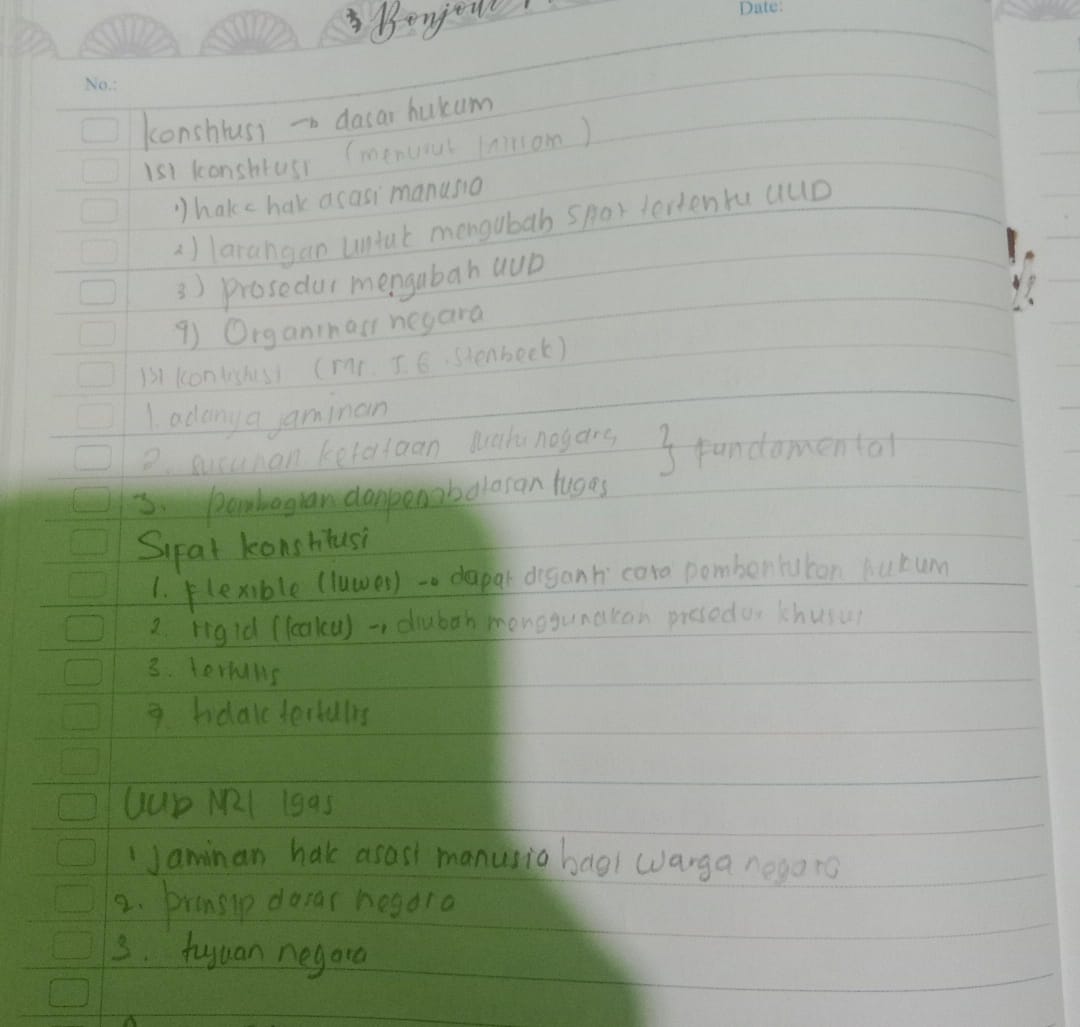 Bonjour
Date:
No.:
konstitusi → dasar hukum
isi konstitusi (menurut
1) hak-hak asasi manusia
2) larangan untuk mengubah sifat tertentu UUD
3) prosedur mengubah UUD
4) Organinasi negara
isi kontistusi (Mr. J. G. Stenbeek)
1. adanya jaminan
2. susunan ketataan suatu negara } fundamental
3. pembagian dan pembatasan tugas
Sifat konstitusi
1. Flexible (luwes) → dapat diganti cara pembentukan hukum
2. rigid (kaku) → diubah menggunakan prosedur khusus
3. tertulis
4. tidak tertulis
UUD NRI 1945
1 Jaminan hak asasi manusia bagi warga negara
2. prinsip dasar negara
3. tujuan negara